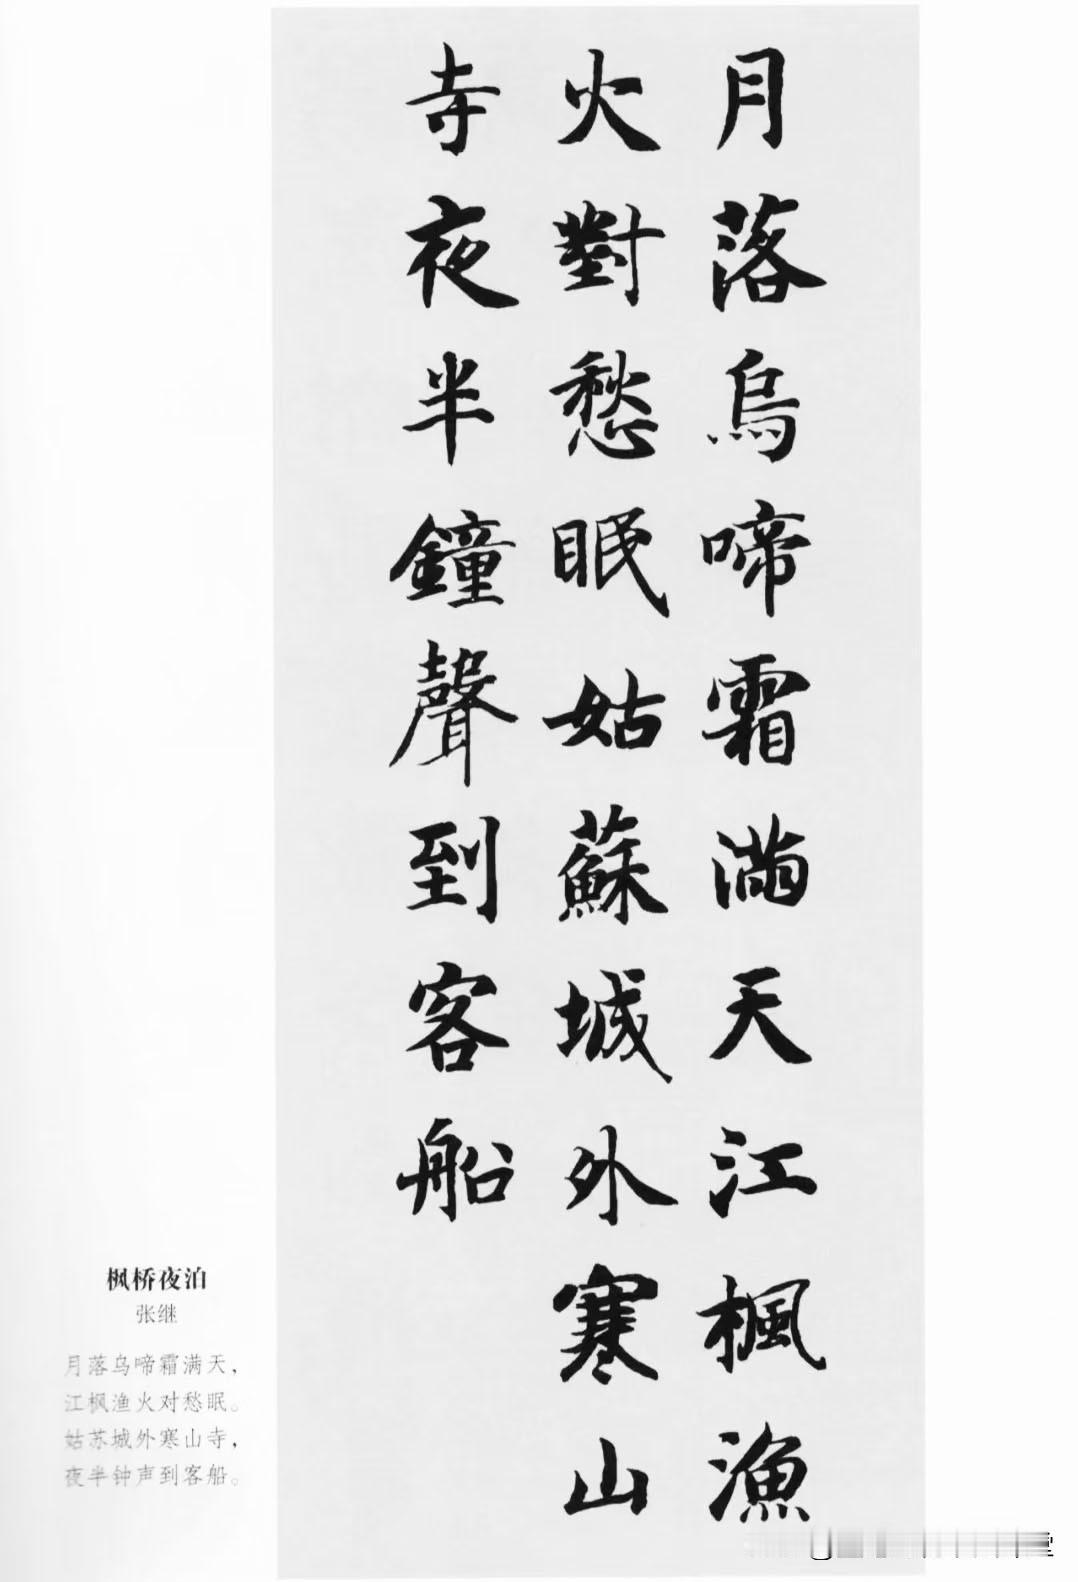 月落烏啼霜滿天江楓漁
火對愁眠姑蘇城外寒山
寺夜半鐘聲到客船
枫桥夜泊
张继
月落乌啼霜满天，
江枫渔火对愁眠。
姑苏城外寒山寺，
夜半钟声到客船。